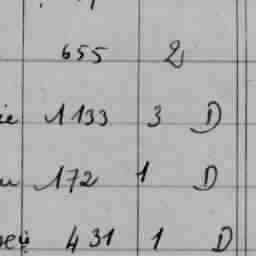 655 2
1133 3 D
172 1 D
431 1 D